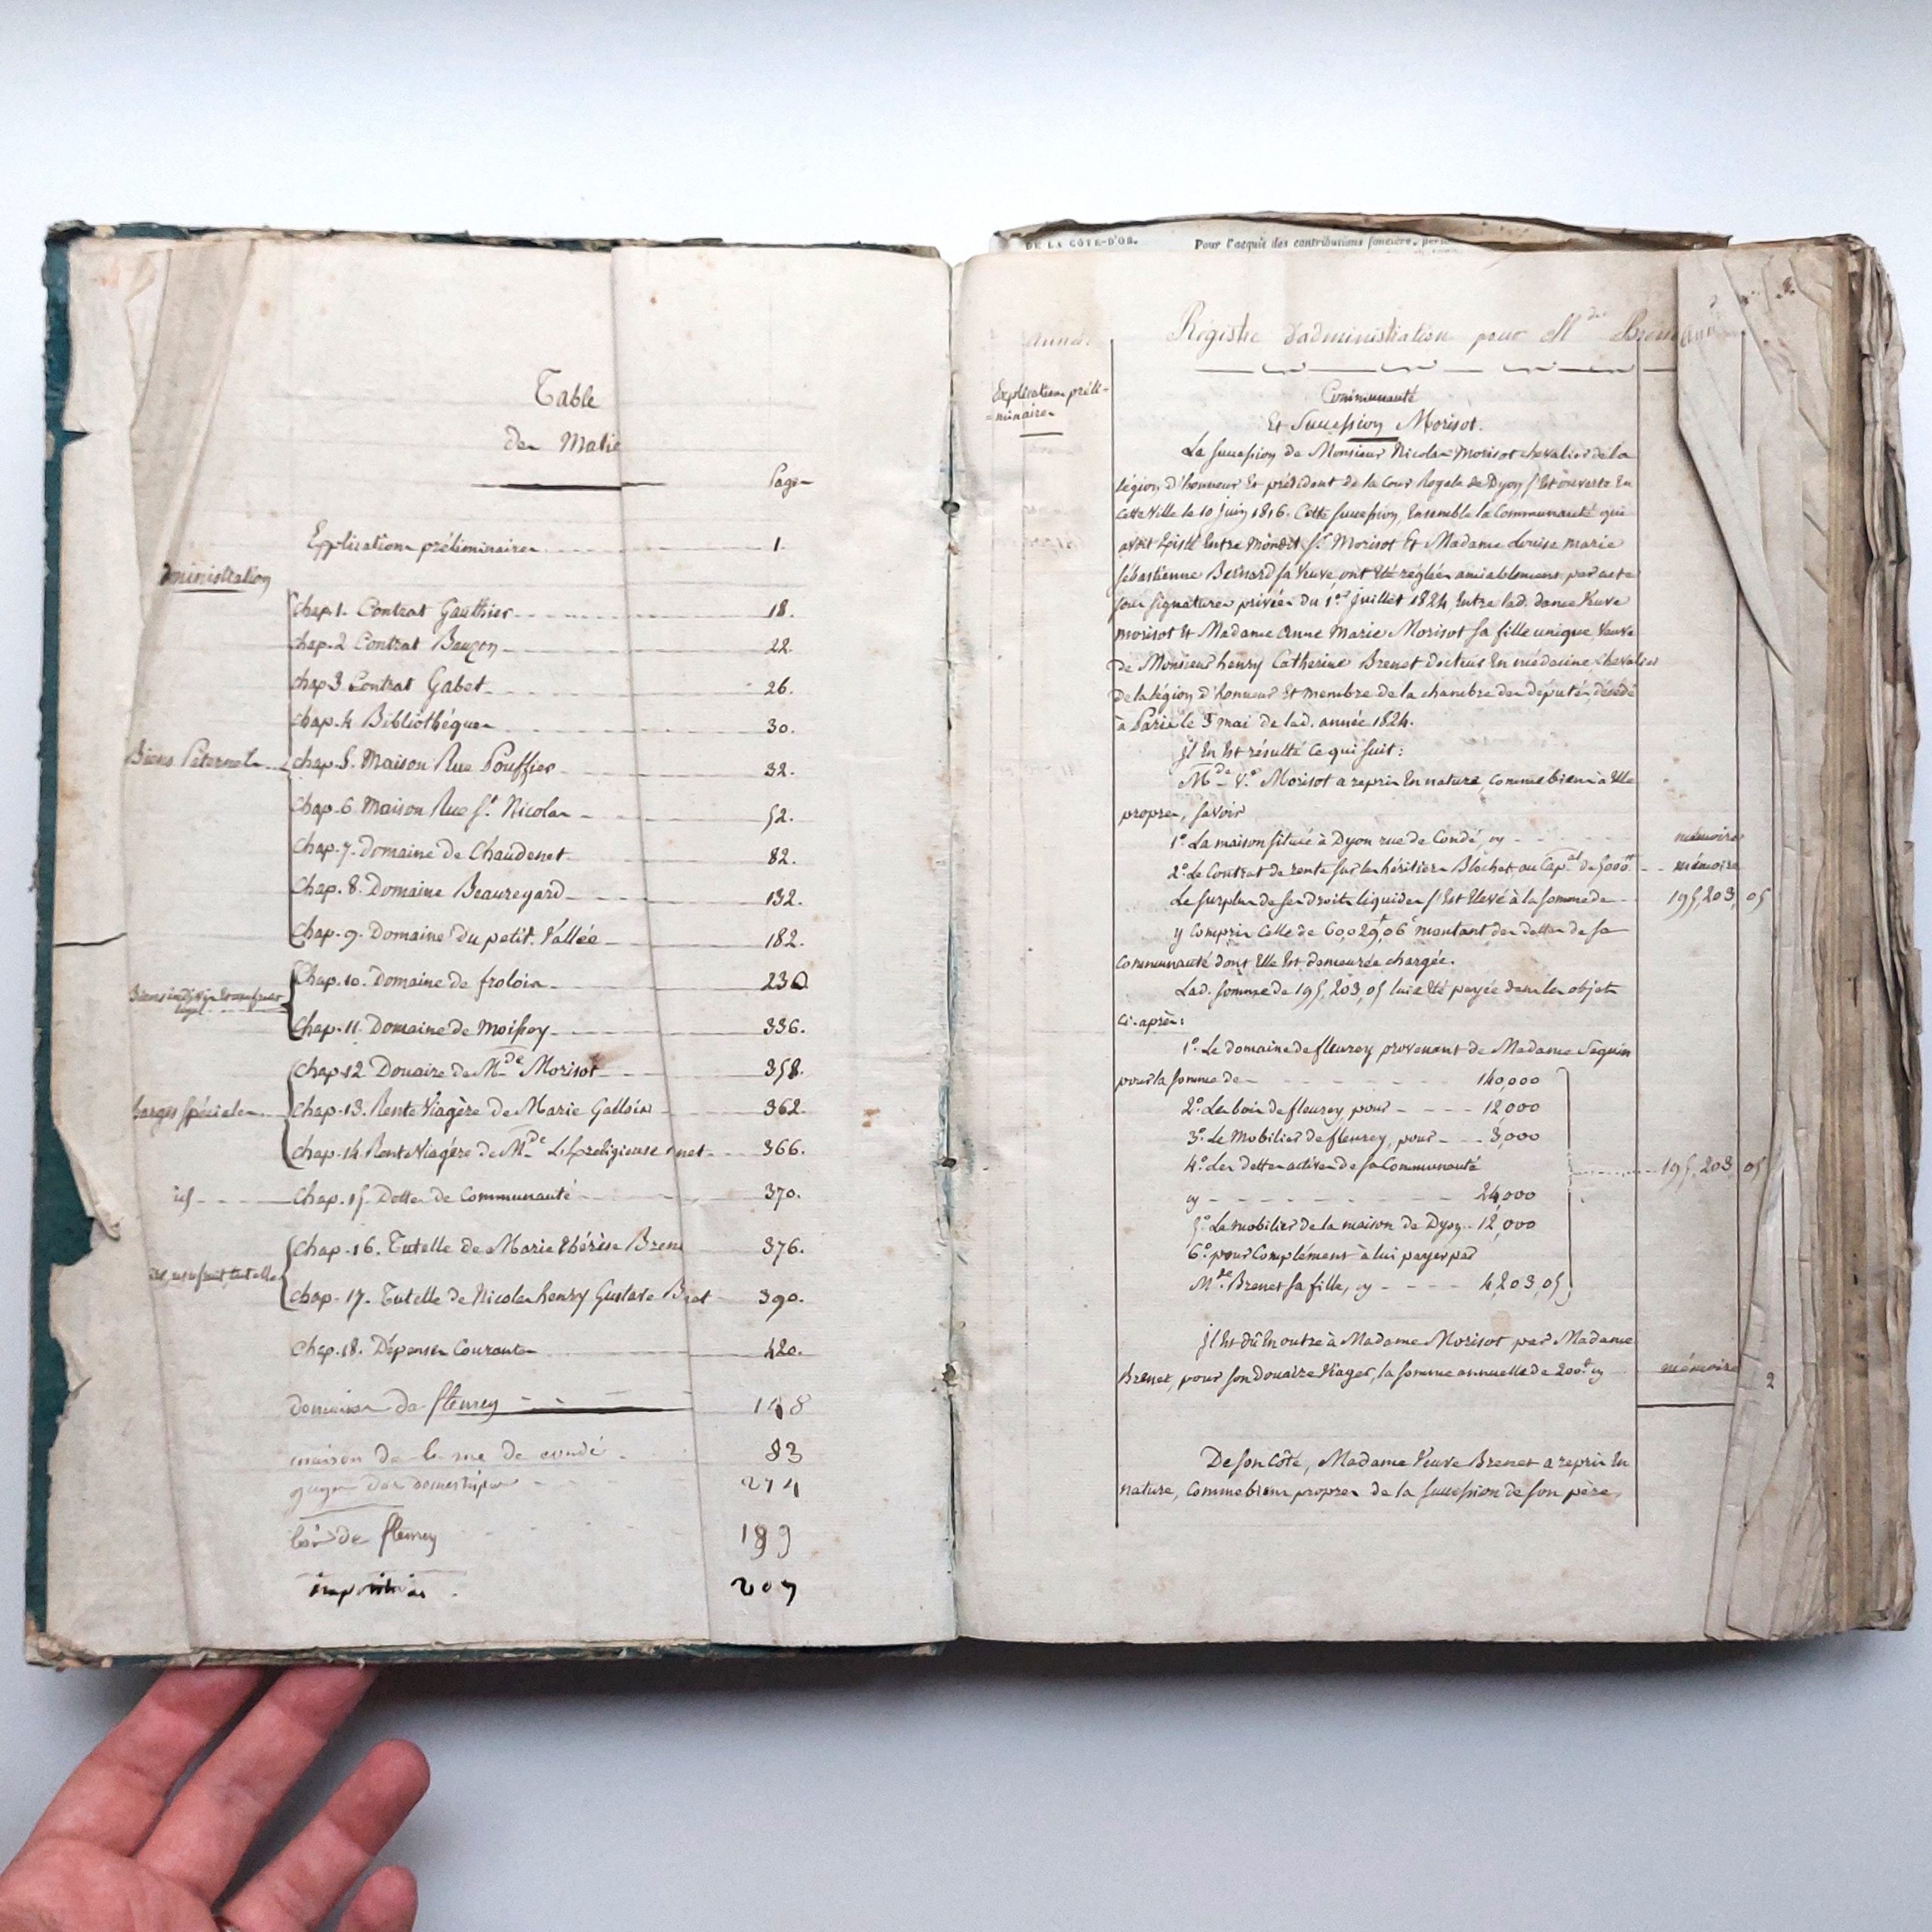 Table
des Matiè
Pages
Explications préliminaires 1.
dministration
Chap. 1. Contrat Gauthier 18.
Chap. 2 Contrat Bauzon 22.
Chap 3. Contrat Gabet 26.
Chap. 4. Bibliothéques 30.
Biens Paternels Chap. 5. Maison Rue Pouffier 32.
Chap. 6. Maison Rue St. Nicolas 52.
Chap. 7. Domaine de Chaudenet 82.
Chap. 8. Domaine Beauregard 132.
Chap. 9. Domaine du petit Vallée 182.
Chap. 10. Domaine de frolois 230
Chap. 11. Domaine de Moissey 336.
Chap 12 Douaire de Mde Morisot 358.
harges spéciales Chap. 13. Rente Viagère de Marie Gallois 362.
Chap. 14. Rente Viagère de Mde religieuse net 366.
Chap. 15. Dettes de Communauté 370.
Chap. 16. Tutelle de Marie thérèse Brene 376.
usufruit, tutelles
Chap. 17. Tutelle de Nicolas henry Gustave B et 390.
Chap. 18. Dépenses Courantes 420.
domaine de fleurey 148
maison de la rue de condé 83
gages des domestiques 274
bois de fleurey 189
impositions 207
DE LA CÔTE-D'OR. Pour l'acquit des contributions foncière, pers
Année
Régistre d'administration pour Mde Brenet
Explications préli=
=minaires
Communauté
Et Succession Morisot.
La succession de Monsieur Nicolas Morisot chevalier de la
légion d'honneur Et président de la Cour Royale de Dyon s'Est ouverte En
cette Ville le 10 juin 1816. Cette succession, Ensemble la Communauté qui
avait Existé Entre Mondit Sr. Morisot Et Madame Louise marie
Sébastienne Bernard sa Veuve, ont Eté réglées amiablement par acte
sous signatures privées du 1er juillet 1824, Entre lad. dame Veuve
morisot Et Madame Anne Marie Morisot sa fille unique, Veuve
de Monsieur henry Catherine Brenet docteur En médecine chevalier
de la légion d'honneur Et membre de la chambre des députés, décédé
à Paris le 5 mai de lad. année 1824.
Jl En Est résulté ce qui suit:
Mde Ve. Morisot a repris En nature, Comme biens à Elle
propres, savoir
1° La maison située à Dyon rue de Condé, cy mémoire
2° Le Contrat de rente sur les héritiers Blochet au Capal de 5000 mémoire
Le surplus de ses Droits liquides s'Est Elevé à la somme de 195,203, 05
y Compris Celle de 60,029f,06c montant des dettes de sa
communauté dont Elle Est demeurée chargée.
Lad. somme de 195,203,05 lui a Eté payée dans les objets
ci-après:
1° Le domaine de fleurey provenant de Madame Seguin
pour la somme de 140,000
2° Les bois de fleurey, pour 12,000
3° Le Mobilier de fleurey, pour 3,000
4° Les dettes actives de la Communauté 195,203 05
cy 24,000
5° Le mobilier de la maison de Dyon 12,000
6° pour Complément à lui payer par
Mde Brenet sa fille, cy 4,203,05
Jl Est dû En outre à Madame Morisot par Madame
Brenet, pour son Douaire Viager, la somme annuelle de 200f cy mémoire
2
De son Côté, Madame Veuve Brenet a repris En
nature, Comme biens propres de la succession de son père,